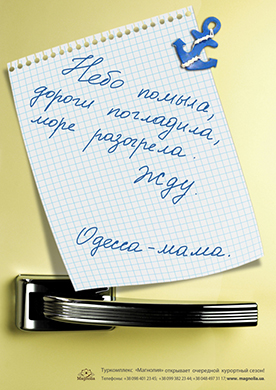 Небо помыла,
дороги погладила,
море разогрела.
Жду.
Одесса-мама.
Магнолия
Туркомплекс «Магнолия» открывает очередной курортный сезон!
Телефоны: +38 098 401 23 45, +38 099 382 23 44, +38 048 497 31 17; www.magnolia.us